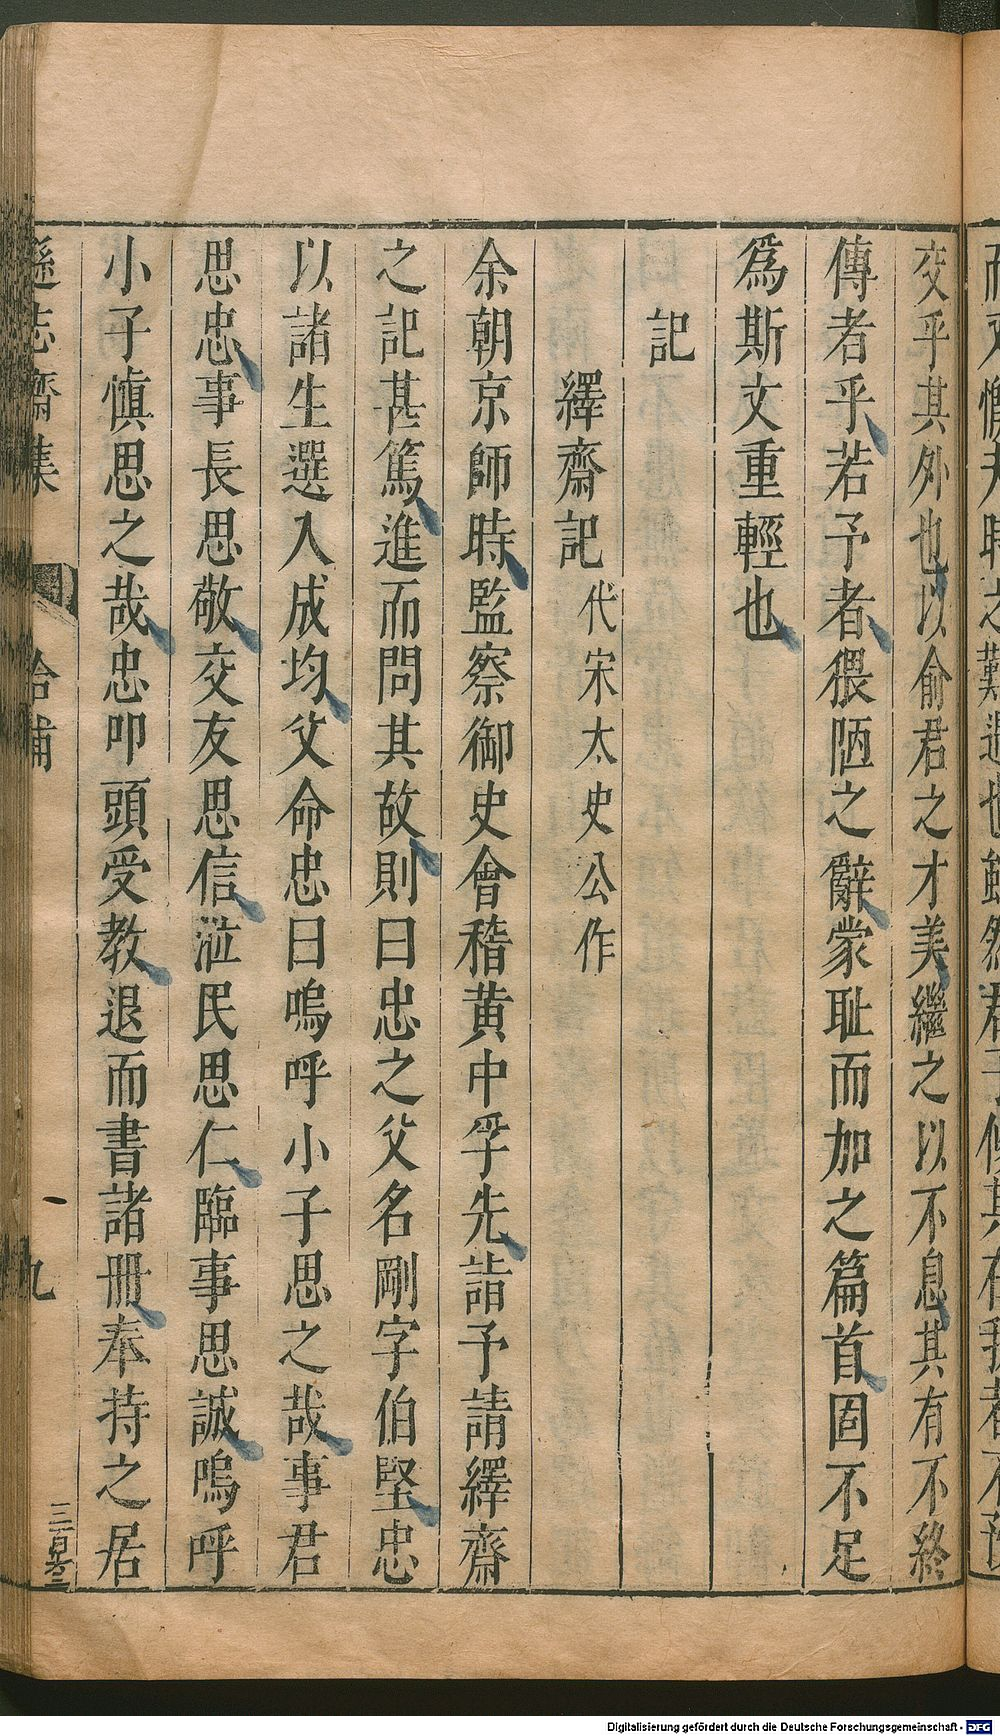 交乎其外也以俞君之才美繼之以不息其有不終
傳者乎若予者猥陋之辭蒙耻而加之篇首固不足
爲斯文重輕也
記
繹齋記代宋太史公作
余朝京師時監察御史會稽黃中孚先詣予請繹齋
之記甚篤進而問其故則曰忠之父名剛字伯堅忠
以諸生選入成均父命忠曰嗚呼小子思之哉事君
思忠事長思敬交友思信涖民思仁臨事思誠嗚呼
小子愼思之哉忠叩頭受教退而書諸冊奉持之居
遜志齋集
拾補
九
Digitalisierung gefördert durch die Deutsche Forschungsgemeinschaft - DFG